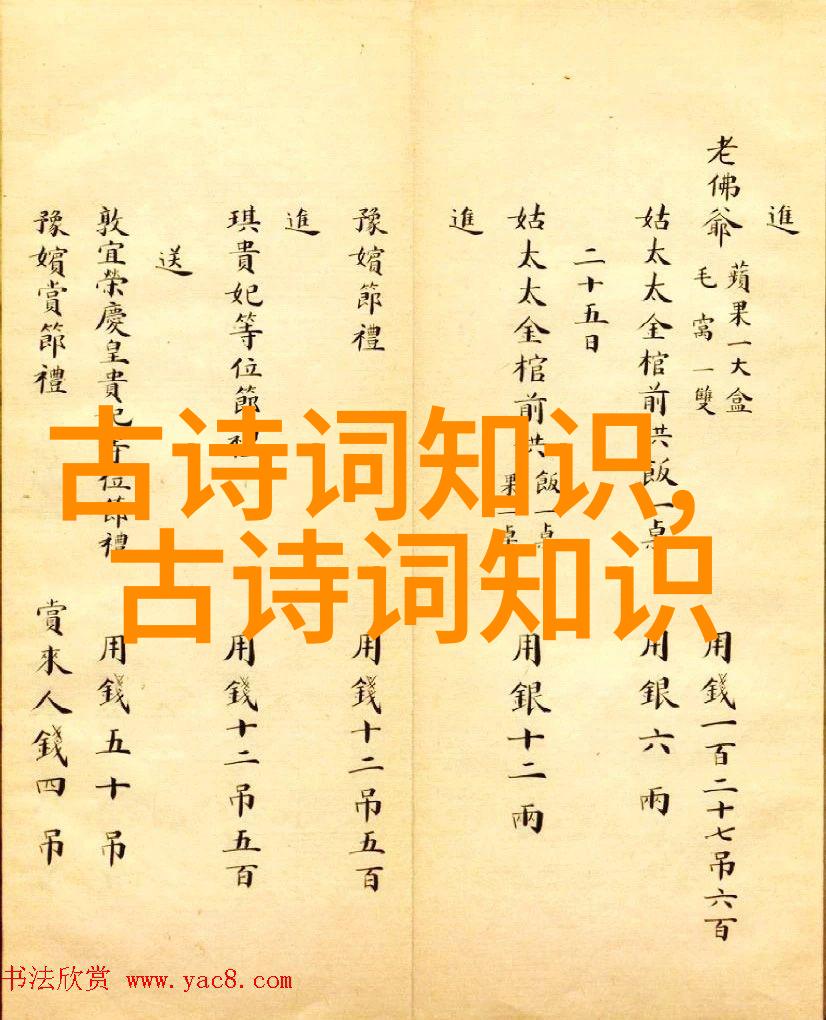 進
老佛爺 蘋果一大盒 毛窩一雙 用錢一百二十七吊六百
姑太太金棺前供飯一桌 用銀六兩
二十五日
姑太太金棺前供飯一桌 果一桌 用銀十二兩
進
豫嬪節禮 用錢十二吊五百
進
琪貴妃等位節禮 用錢十二吊五百
送
敦宜榮慶皇貴妃等位節禮 用錢五十吊
豫嬪賞節禮 賞來人錢四吊
古诗词知识,
古诗词知识
书法欣赏 www.yac8.com